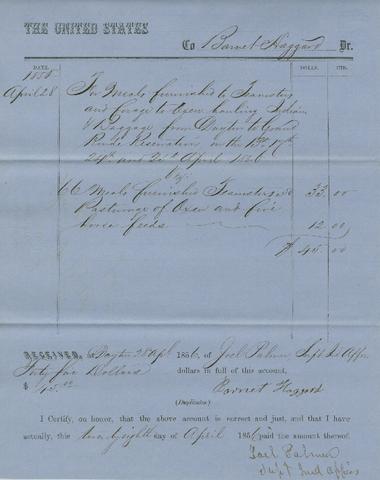 THE UNITED STATES
To Barnet Haggard Dr.
DATE. DOLLS. CTS.
1856
April 28 For Meals furnished to Teamsters
and forage to Oxen hauling Indian
Baggage from Dayton to Grand
Ronde Reservation on the 17th
24th and April 1856
66 Meals furnished Teamsters 50 33 00
Pasturage of Oxen and five
horse feeds 12 00
$ 45 00
RECEIVED, at Dayton 28 Apl 1856, of Joel Palmer Supt Ind Affrs
Forty five Dollars dollars in full of this account,
$ 45.00 Barnet Haggard
(Duplicates)
I Certify, on honor, that the above account is correct and just, and that I have
actually, this twenty eighth day of April 1856 paid the amount thereof.
Joel Palmer
Supt Ind Affairs